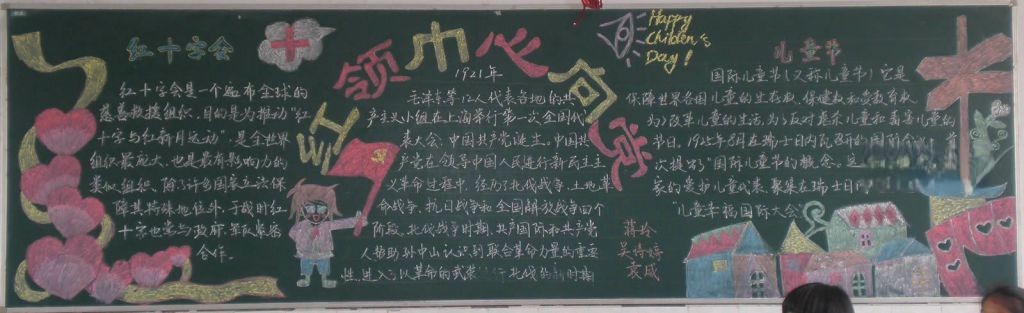 红十字会
红十字会是一个遍布全球的
慈善救援组织,目的是为推动“红
十字与红新月运动”,是全世界
组织最庞大,也是最有影响力的
类似组织,除了许多国家立法保
障其特殊地位外,于战时红
十字也常与政府、军队紧密
合作。
红领巾心向党
1921年
毛泽东等12人代表各地的共
产主义小组在上海举行第一次全国代
表大会,中国共产党诞生。中国共
产党在领导中国人民进行新民主主
义革命过程中,经历了北伐战争、土地革
命战争、抗日战争和全国解放战争四个
阶段。北伐战争时期,共产国际和共产党
人帮助孙中山认识到联合革命力量的重要
性,进入了以革命的武装 行北伐的新时期
蒋玲
吴婷婷
袁成
Happy
Children's
Day!
儿童节
国际儿童节(又称儿童节)它是
保障世界各国儿童的生存权、保健权和受教育权
为了改革儿童的生活,为了反对虐杀儿童和毒害儿童的
节日。1925年8月在瑞士日内瓦召开的国际会
次提出了“国际儿童节的概念。这
家的爱护儿童代表,聚集在瑞士日
“儿童幸福国际大会